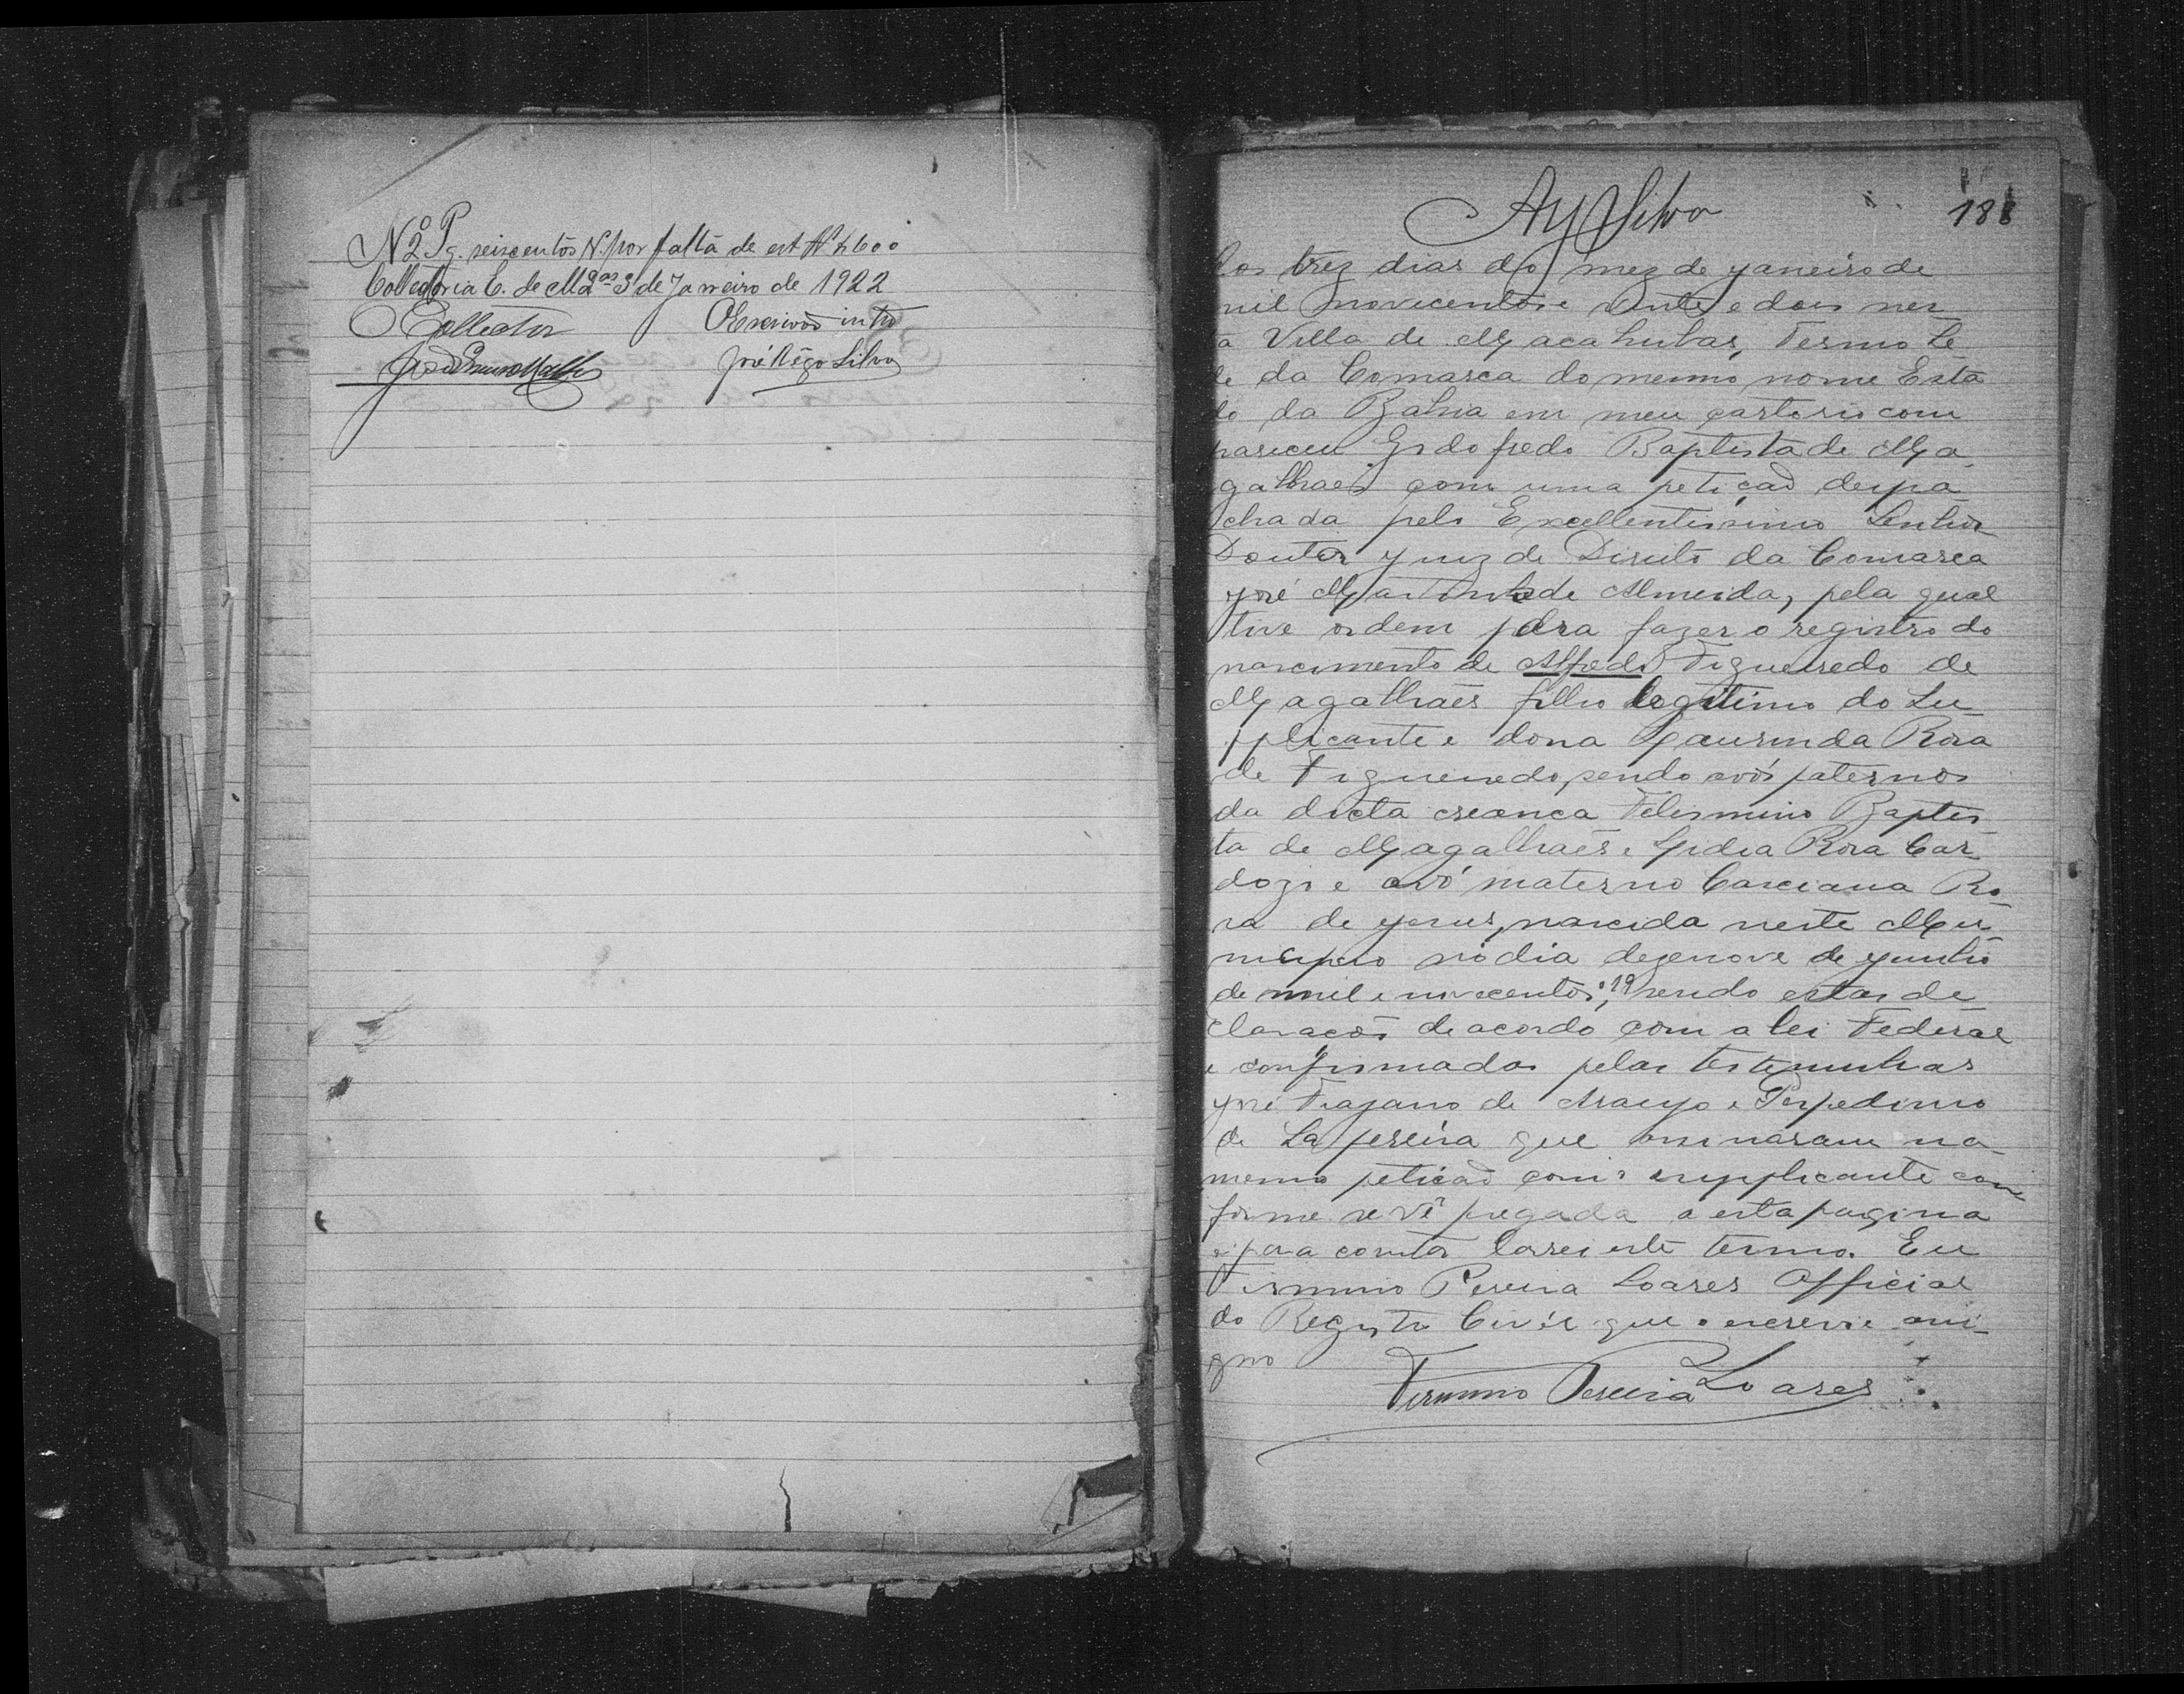 Nº 2 Pg. seiscentos rs. por falta de est. Rs $600
Collectoria E. de Maas 3 de Janeiro de 1922
O Collector O Escrivão intº
José Rêgo Silva
188
Silva
os trez dias do mez de janeiro de
mil novecentos e vinte e dois nes
a Villa de Macahubas, Termo Se
de da Comarca do mesmo nome Esta
do da Bahia em meu cartorio com
pareceu Godofredo Baptista de Ma
galhaes com uma petição despa
chada pelo Excellentissimo Senhor
Doutor Juiz de Direito da Comarca
José de Almeida, pela qual
tive ordem para fazer o registro do
nascimento de Alfredo Figueiredo de
Magalhães filho legitimo do Su
pplicante e dona Laurinda Rosa
de Figueiredo, sendo avós paternos
da dicta creança Felismino Baptis
ta de Magalhães e Lidia Rosa Car
dozo e avó materno Casciana Ro
sa de Jesus, nascida neste Mu
nicipio no dia dezenove de junho
de mil e novecentos e 19, sendo estas de
clarações de acordo com a lei Federal
e confirmadas pelas testemunhas
José Trajano de Araujo e
de Sá pereira que assinaram na
mesma petição com o supplicante con
forme se vê pregada a esta pagina
e para constar lavrei este termo. Eu
Firmino Pereira Soares Official
do Registro Civil que o escrevi e assi
gno
Firmino Pereira Soares